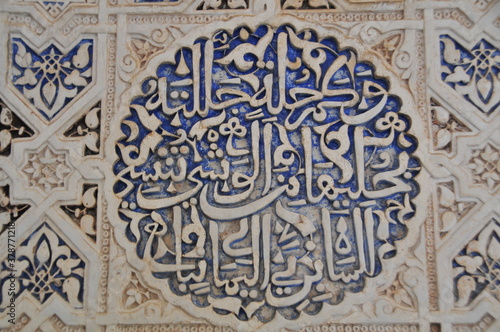 وكم حلة جللته
بحليها من الوشي تنسي
السابري اليمانيا